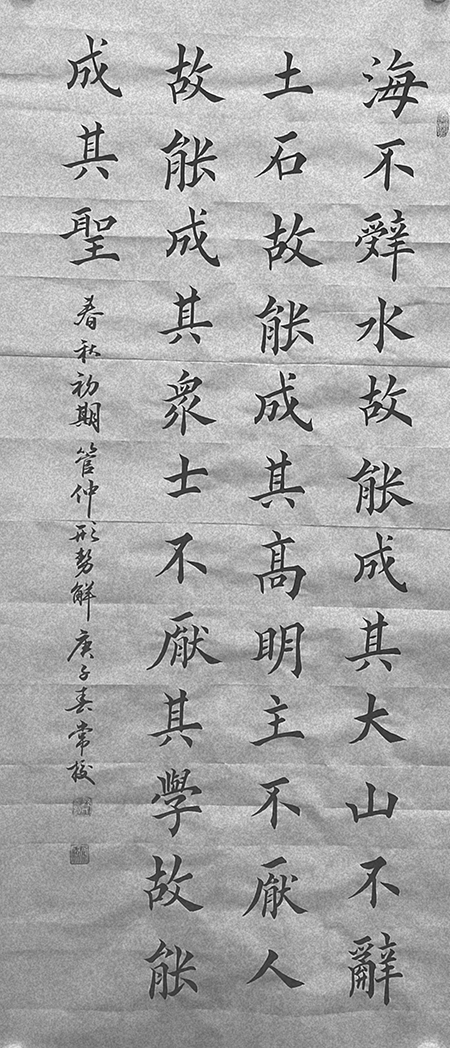 海不辤水故能成其大山不辭
土石故能成其高明主不厭人
故能成其衆士不厭其學故能
成其聖
春秋初期管仲形勢解庚子春常校